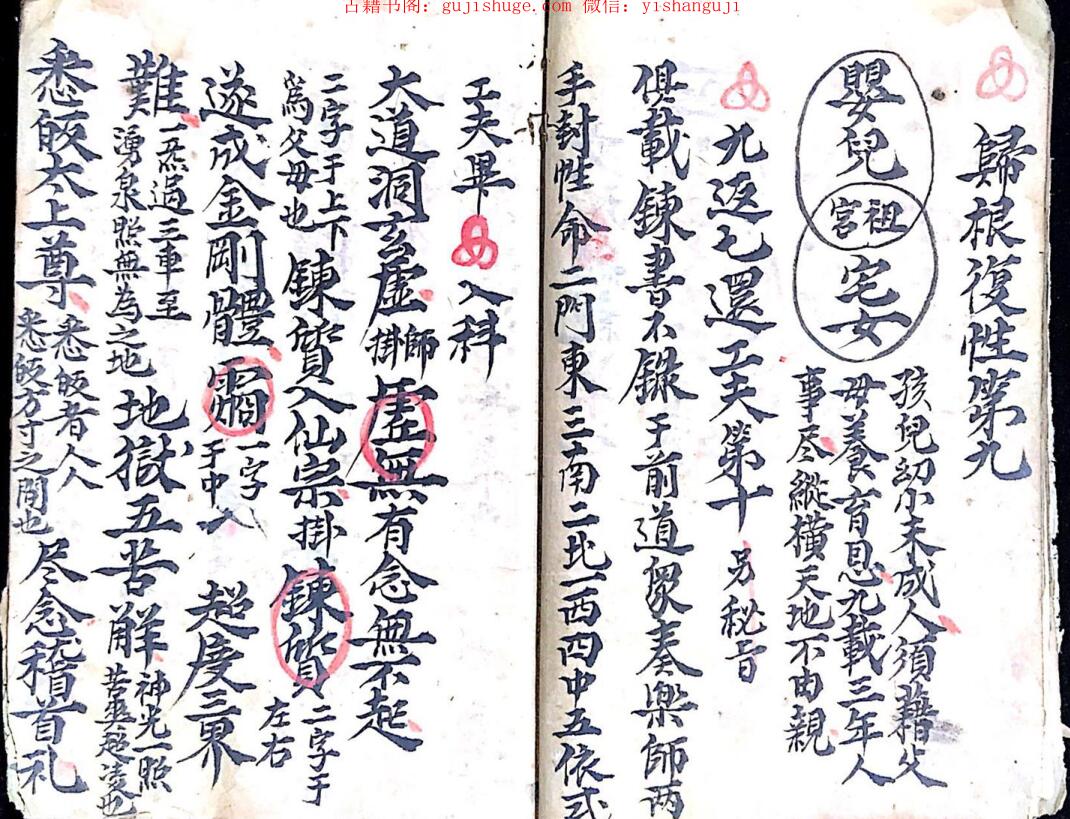 古籍书图：gujishuge.com 微信：yishanguji
歸根復性第九
嬰兒
祖宮
宅女
孩兒幼小未成人須藉父
母養育恩九載三年人
事尽縱横天地不由親
九返七還工夫第十 另秘旨
俱載鍊書不錄于前道眾奏樂師两
手封性命二門東三南二北一西四中五依式
工夫畢 入科
大道洞玄虛 師掛 虛無有念無不起
二字于上下
為父母也 鍊質入仙宗 掛 鍊質 二字于
左右
遂成金剛體 一字
于中 超度三界
難 一炁過三車至
湧泉照無為之地 地獄五苦解 神光一照
悉皈太上尊 悉皈者人人
悉皈方寸之間也 尽念稽首礼